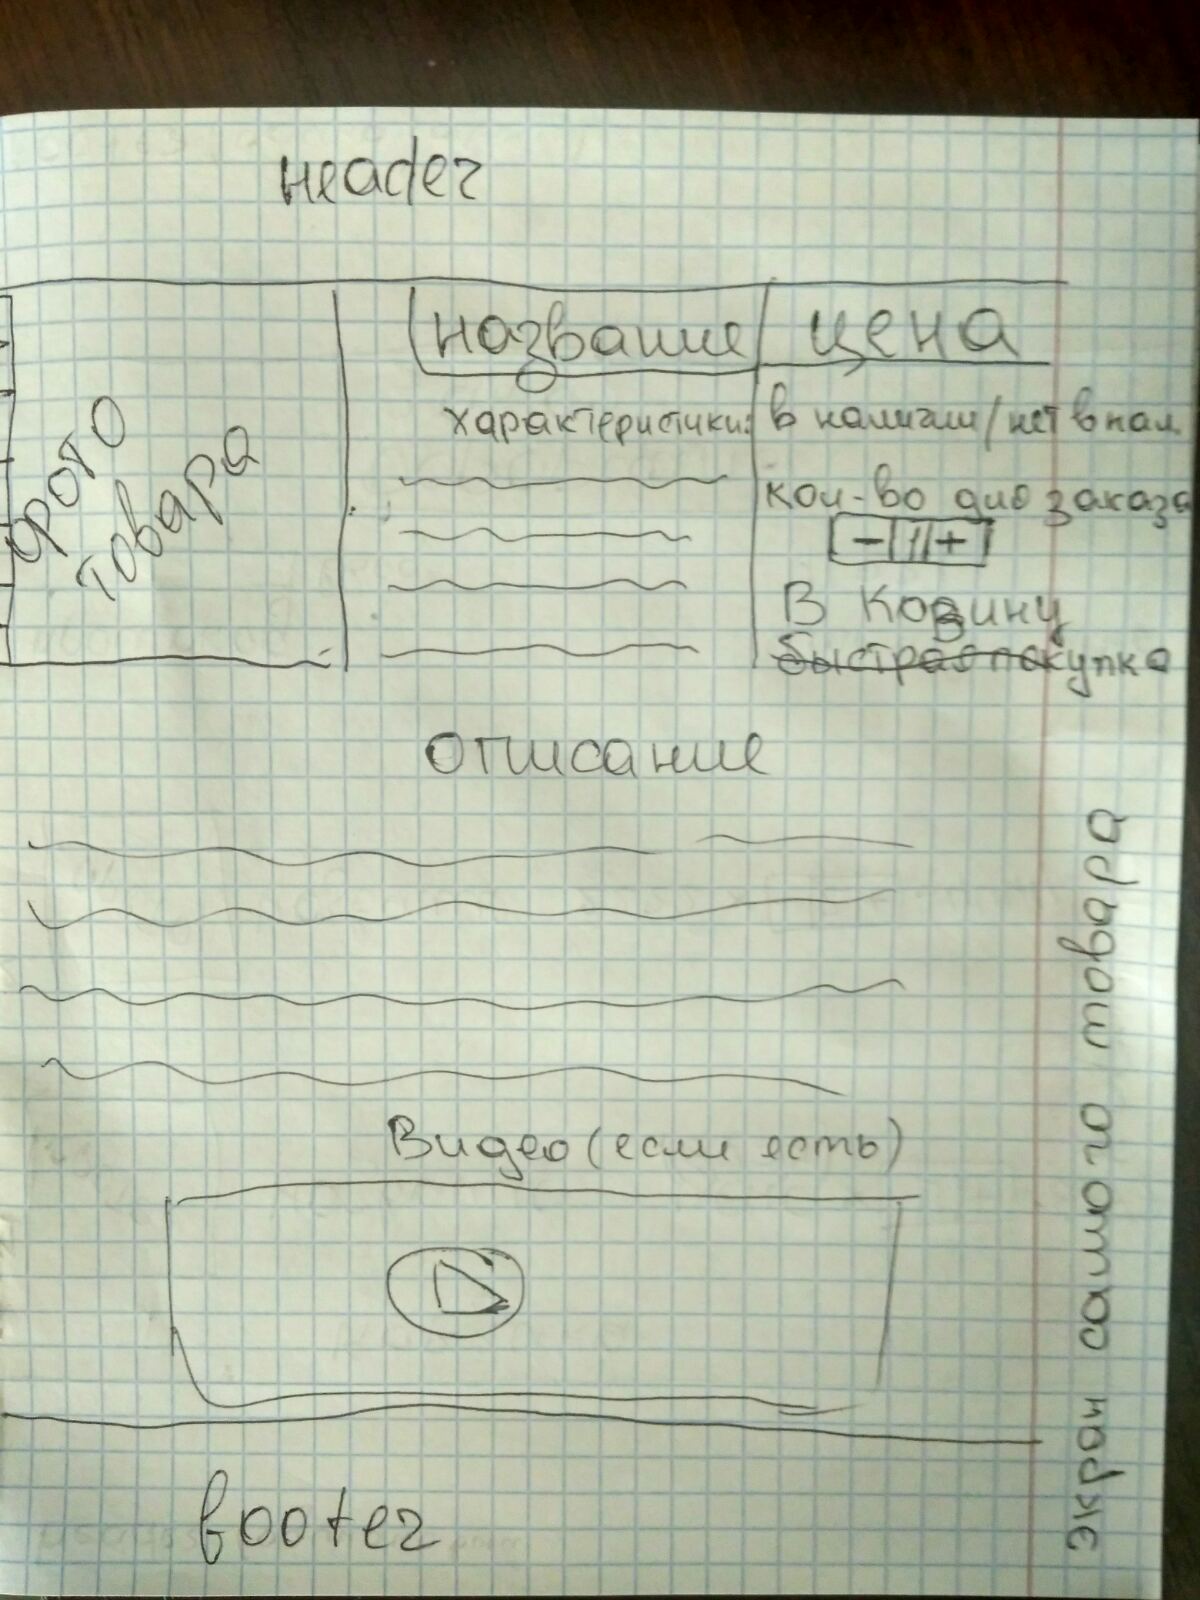 Header
название
цена
фото
товара
характеристики:
в наличии/нет в нал.
кол-во для заказа
- +
В Козину
быстрая покупка
описание
Видео (если есть)
footer
экран самого товара